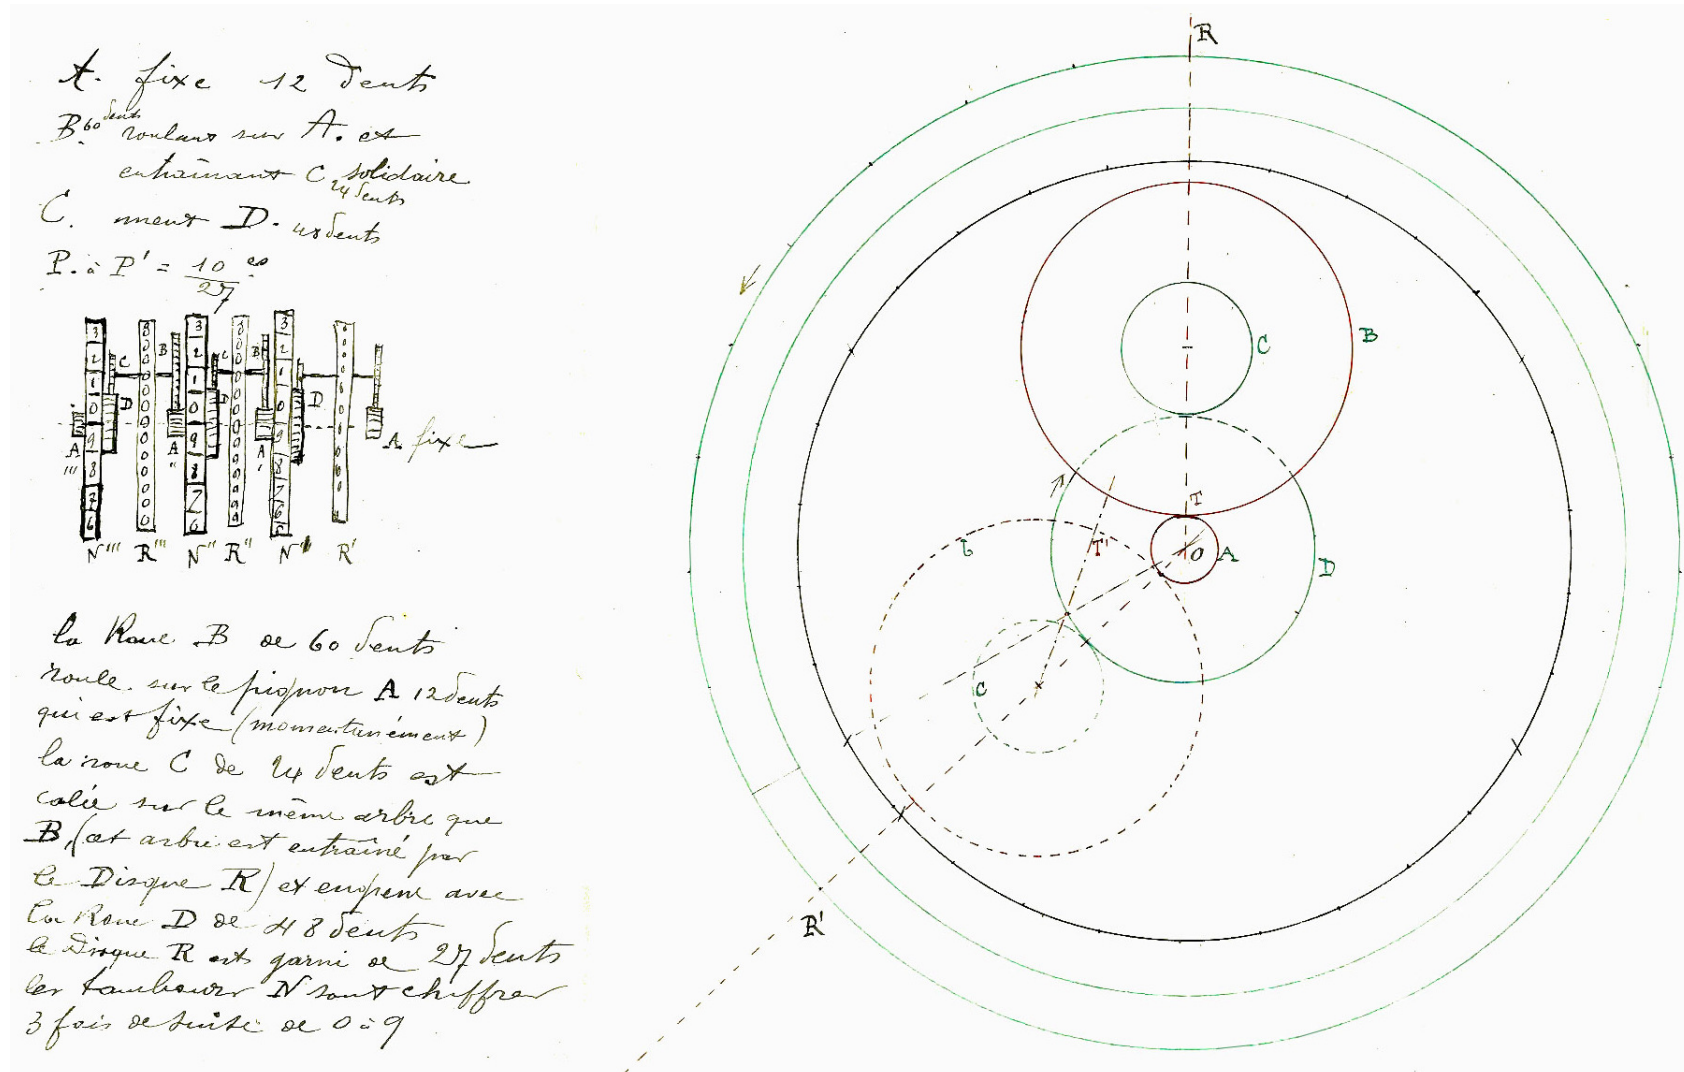 A. fixe 12 dents
B 60 dents roulant sur A. et
entraînant C solidaire
24 dents
C. menent D. 48 dents
P. à P' = 10/27 es
3 8 3 8 3
2 2 2
1 1 1
0 0 0
9 9 9
8 8 8
7 7 7
6 6 6
C B C B
D D D
A''' A'' A' A fixe
N''' R''' N'' R'' N' R'
la Roue B de 60 dents
roule sur le pignon A 12 dents
qui est fixe (momentanément)
la roue C de 24 dents est
calée sur le même arbre que
B, (cet arbre est entraîné par
le Disque R) et engrene avec
la Roue D de 48 dents
le Disque R est garni de 27 dents
les tambours N sont chiffrés
3 fois de suite de 0 à 9
R
B
C
T
b
T'
O
A
D
C
R'